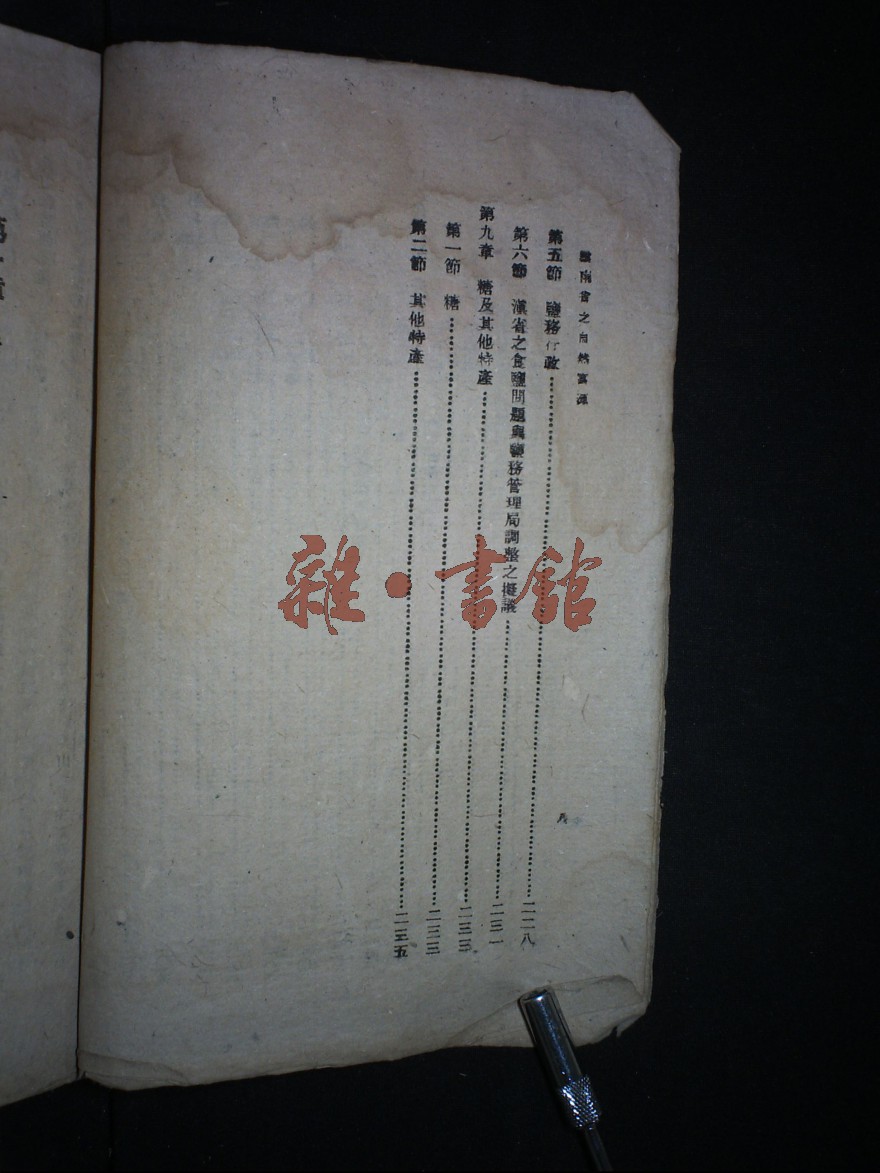 雲南省之自然富源
第五節　鹽務行政……二二八
第六節　滇省之食鹽問題與鹽務管理局調整之擬議……二三一
第九章　糖及其他特產……二三三
第一節　糖……二三三
第二節　其他特產……二三五
雜·書館